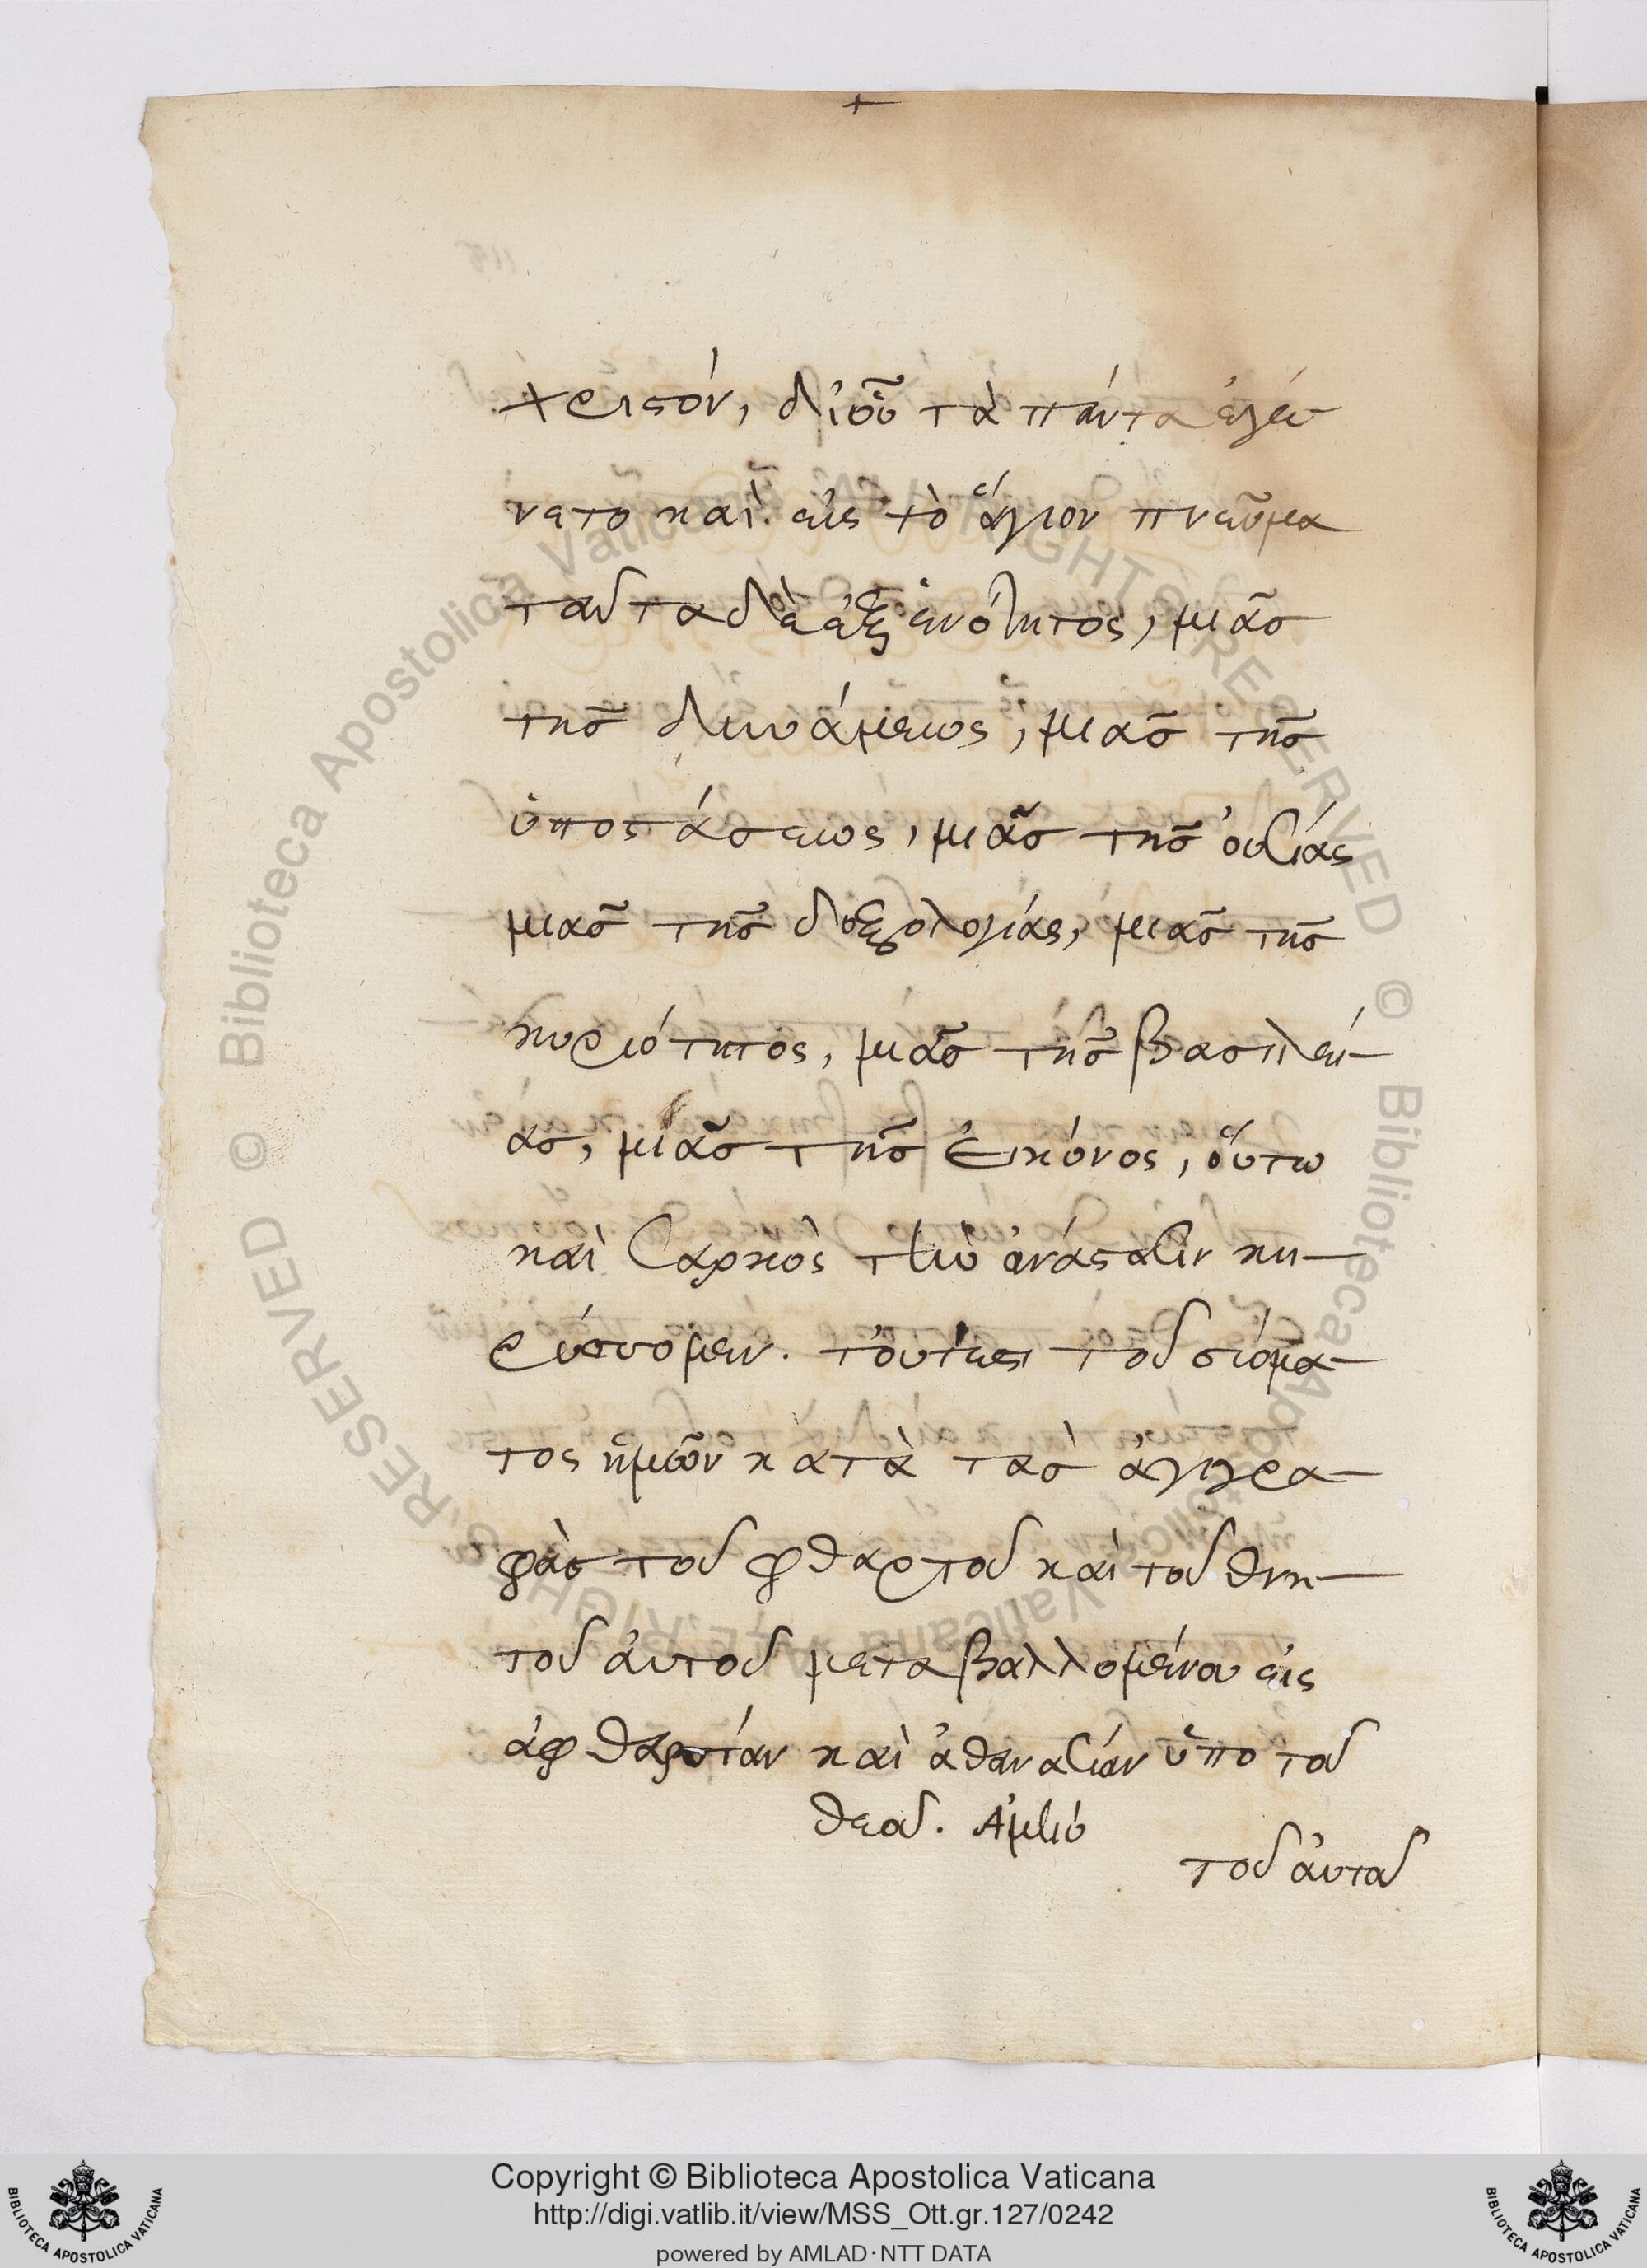 χριστόν, δι' οὗ τὰ πάντα ἐγέ-
νετο καὶ εἰς τὸ ἅγιον πνεῦμα
ταῦτα δὲ ἐξ ἑνότητος, μιᾶς
τῆς δυνάμεως, μιᾶς τῆς
ὑποστάσεως, μιᾶς τῆς οὐσίας
μιᾶς τῆς δοξολογίας, μιᾶς τῆς
κυριότητος, μιᾶς τῆς βασιλεί-
ας, μιᾶς τῆς εἰκόνος, οὕτω
καὶ σαρκὸς τὴν ἀνάστασιν κη-
ρύσσομεν. τουτέστι τοῦ σώμα-
τος ἡμῶν κατὰ τὰς
τοῦ φθαρτοῦ καὶ τοῦ θνη-
τοῦ αὐτοῦ μεταβαλλομένου εἰς
ἀφθαρσίαν καὶ ἀθανασίαν ὑπὸ τοῦ
θεοῦ. Ἀμήν
τοῦ αὐτοῦ
© Biblioteca Apostolica Vaticana ALL RIGHTS RESERVED
© Biblioteca Apostolica Vaticana ALL RIGHTS RESERVED
BIBLIOTECA APOSTOLICA VATICANA
Copyright © Biblioteca Apostolica Vaticana
http://digi.vatlib.it/view/MSS_Ott.gr.127/0242
powered by AMLAD·NTT DATA
BIBLIOTECA APOSTOLICA VATICANA